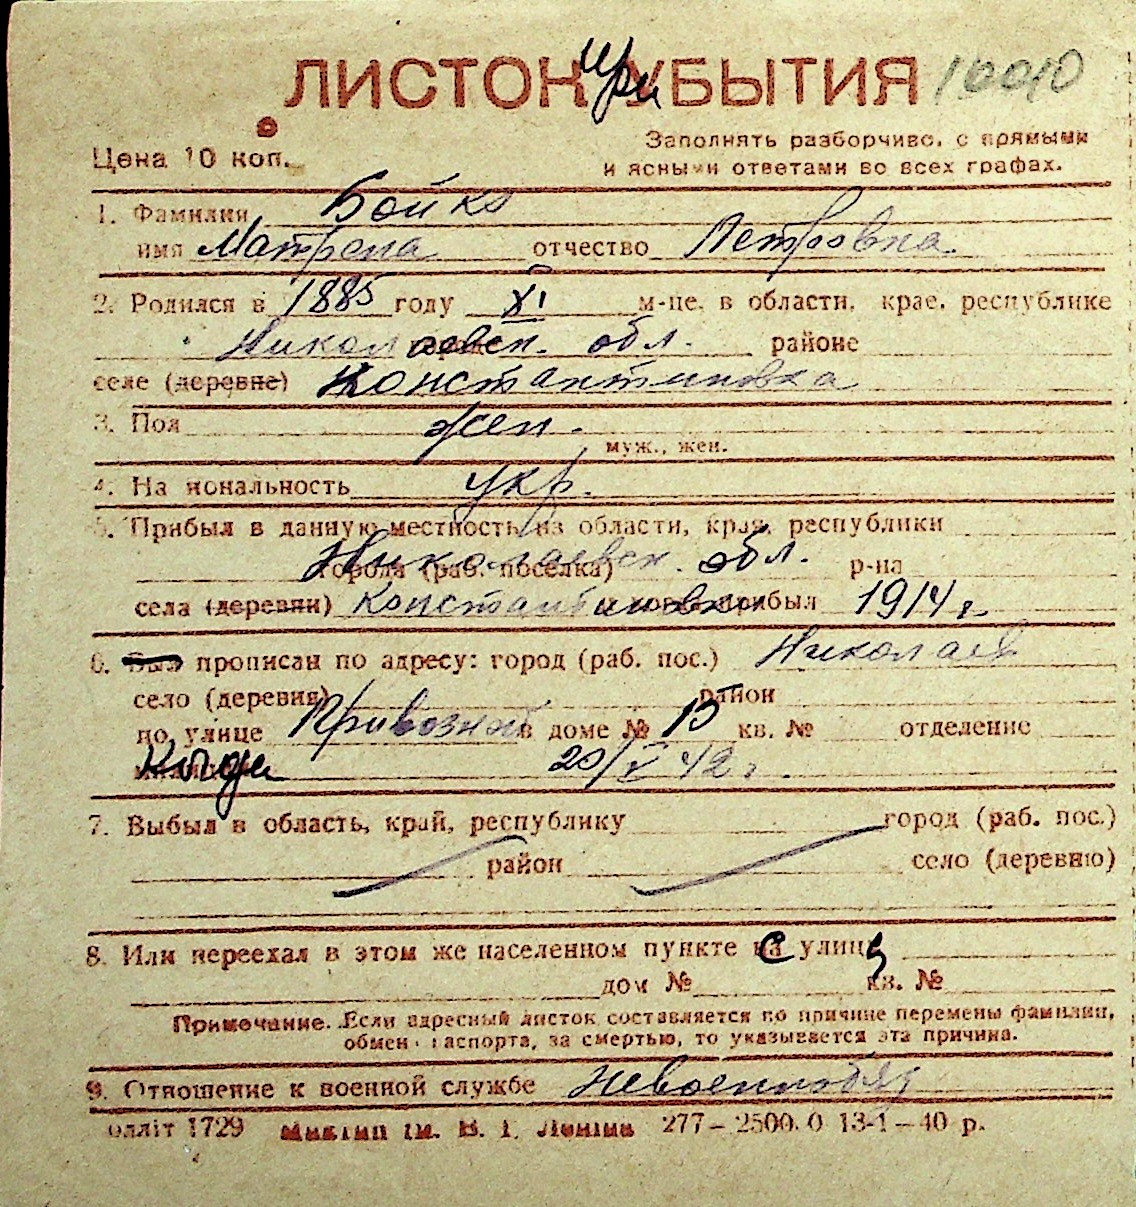 ЛИСТОК при УБЫТИЯ 10010
Цена 10 коп.
Заполнять разборчиво, с прямыми
и ясными ответами во всех графах.
1. Фамилия Бойко
имя Матрена отчество Петровна
2. Родился в 1885 году XI м-це, в области, крае, республике
Николаевск. обл. районе
селе (деревне) Константиновка
3. Пол жен.
муж., жен.
4. Национальность укр.
5. Прибыл в данную местность из области, края, республики
Николаевск. обл. р-на
города (раб. поселка)
села (деревни) Константиновки прибыл 1914 г.
6. Был прописан по адресу: город (раб. пос.) Николаев
село (деревня) район
по улице Привозной в доме № кв. № отделение
Когда 20/V 42 г.
7. Выбыл в область, край, республику город (раб. пос.)
район село (деревню)
8. Или переехал в этом же населенном пункте с улицы
дом № кв. №
Примечание. Если адресный листок составляется по причине перемены фамилии,
обмен паспорта, за смертью, то указывается эта причина.
9. Отношение к военной службе Невоеннообяз
олліт 1729 ім. В. І. Леніна 277–2500.0 13-1–40 р.